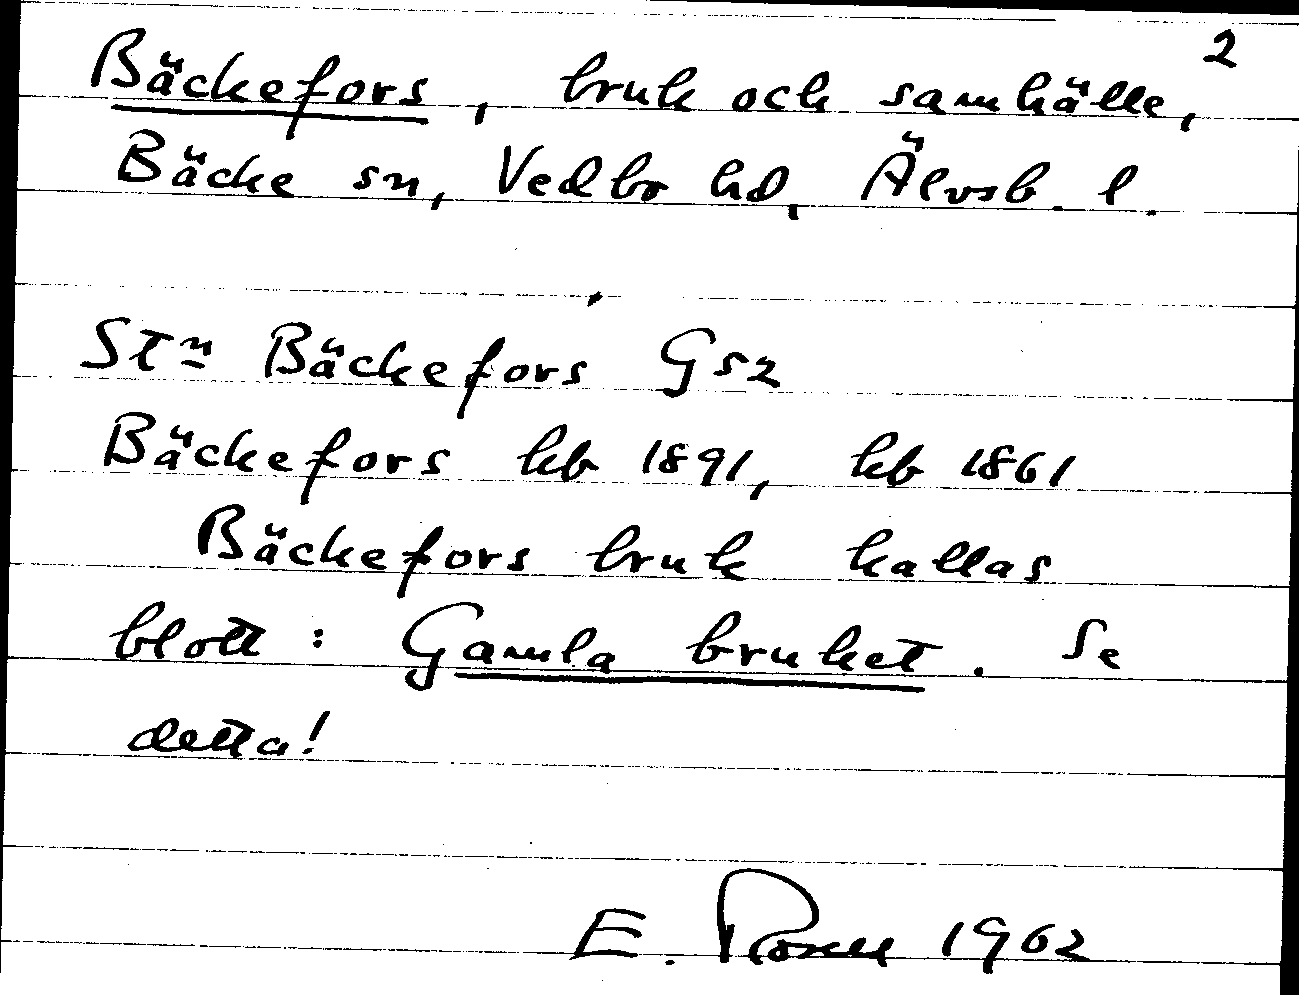 2
Bäckefors, bruk och samhälle,
Bäcke sn, Vedbo hd, Älvsb. l.
Stn Bäckefors Gs2
Bäckefors kb 1891, kb 1861
Bäckefors bruk kallas
blott: Gamla bruket. Se
detta!
E. Rosell 1962